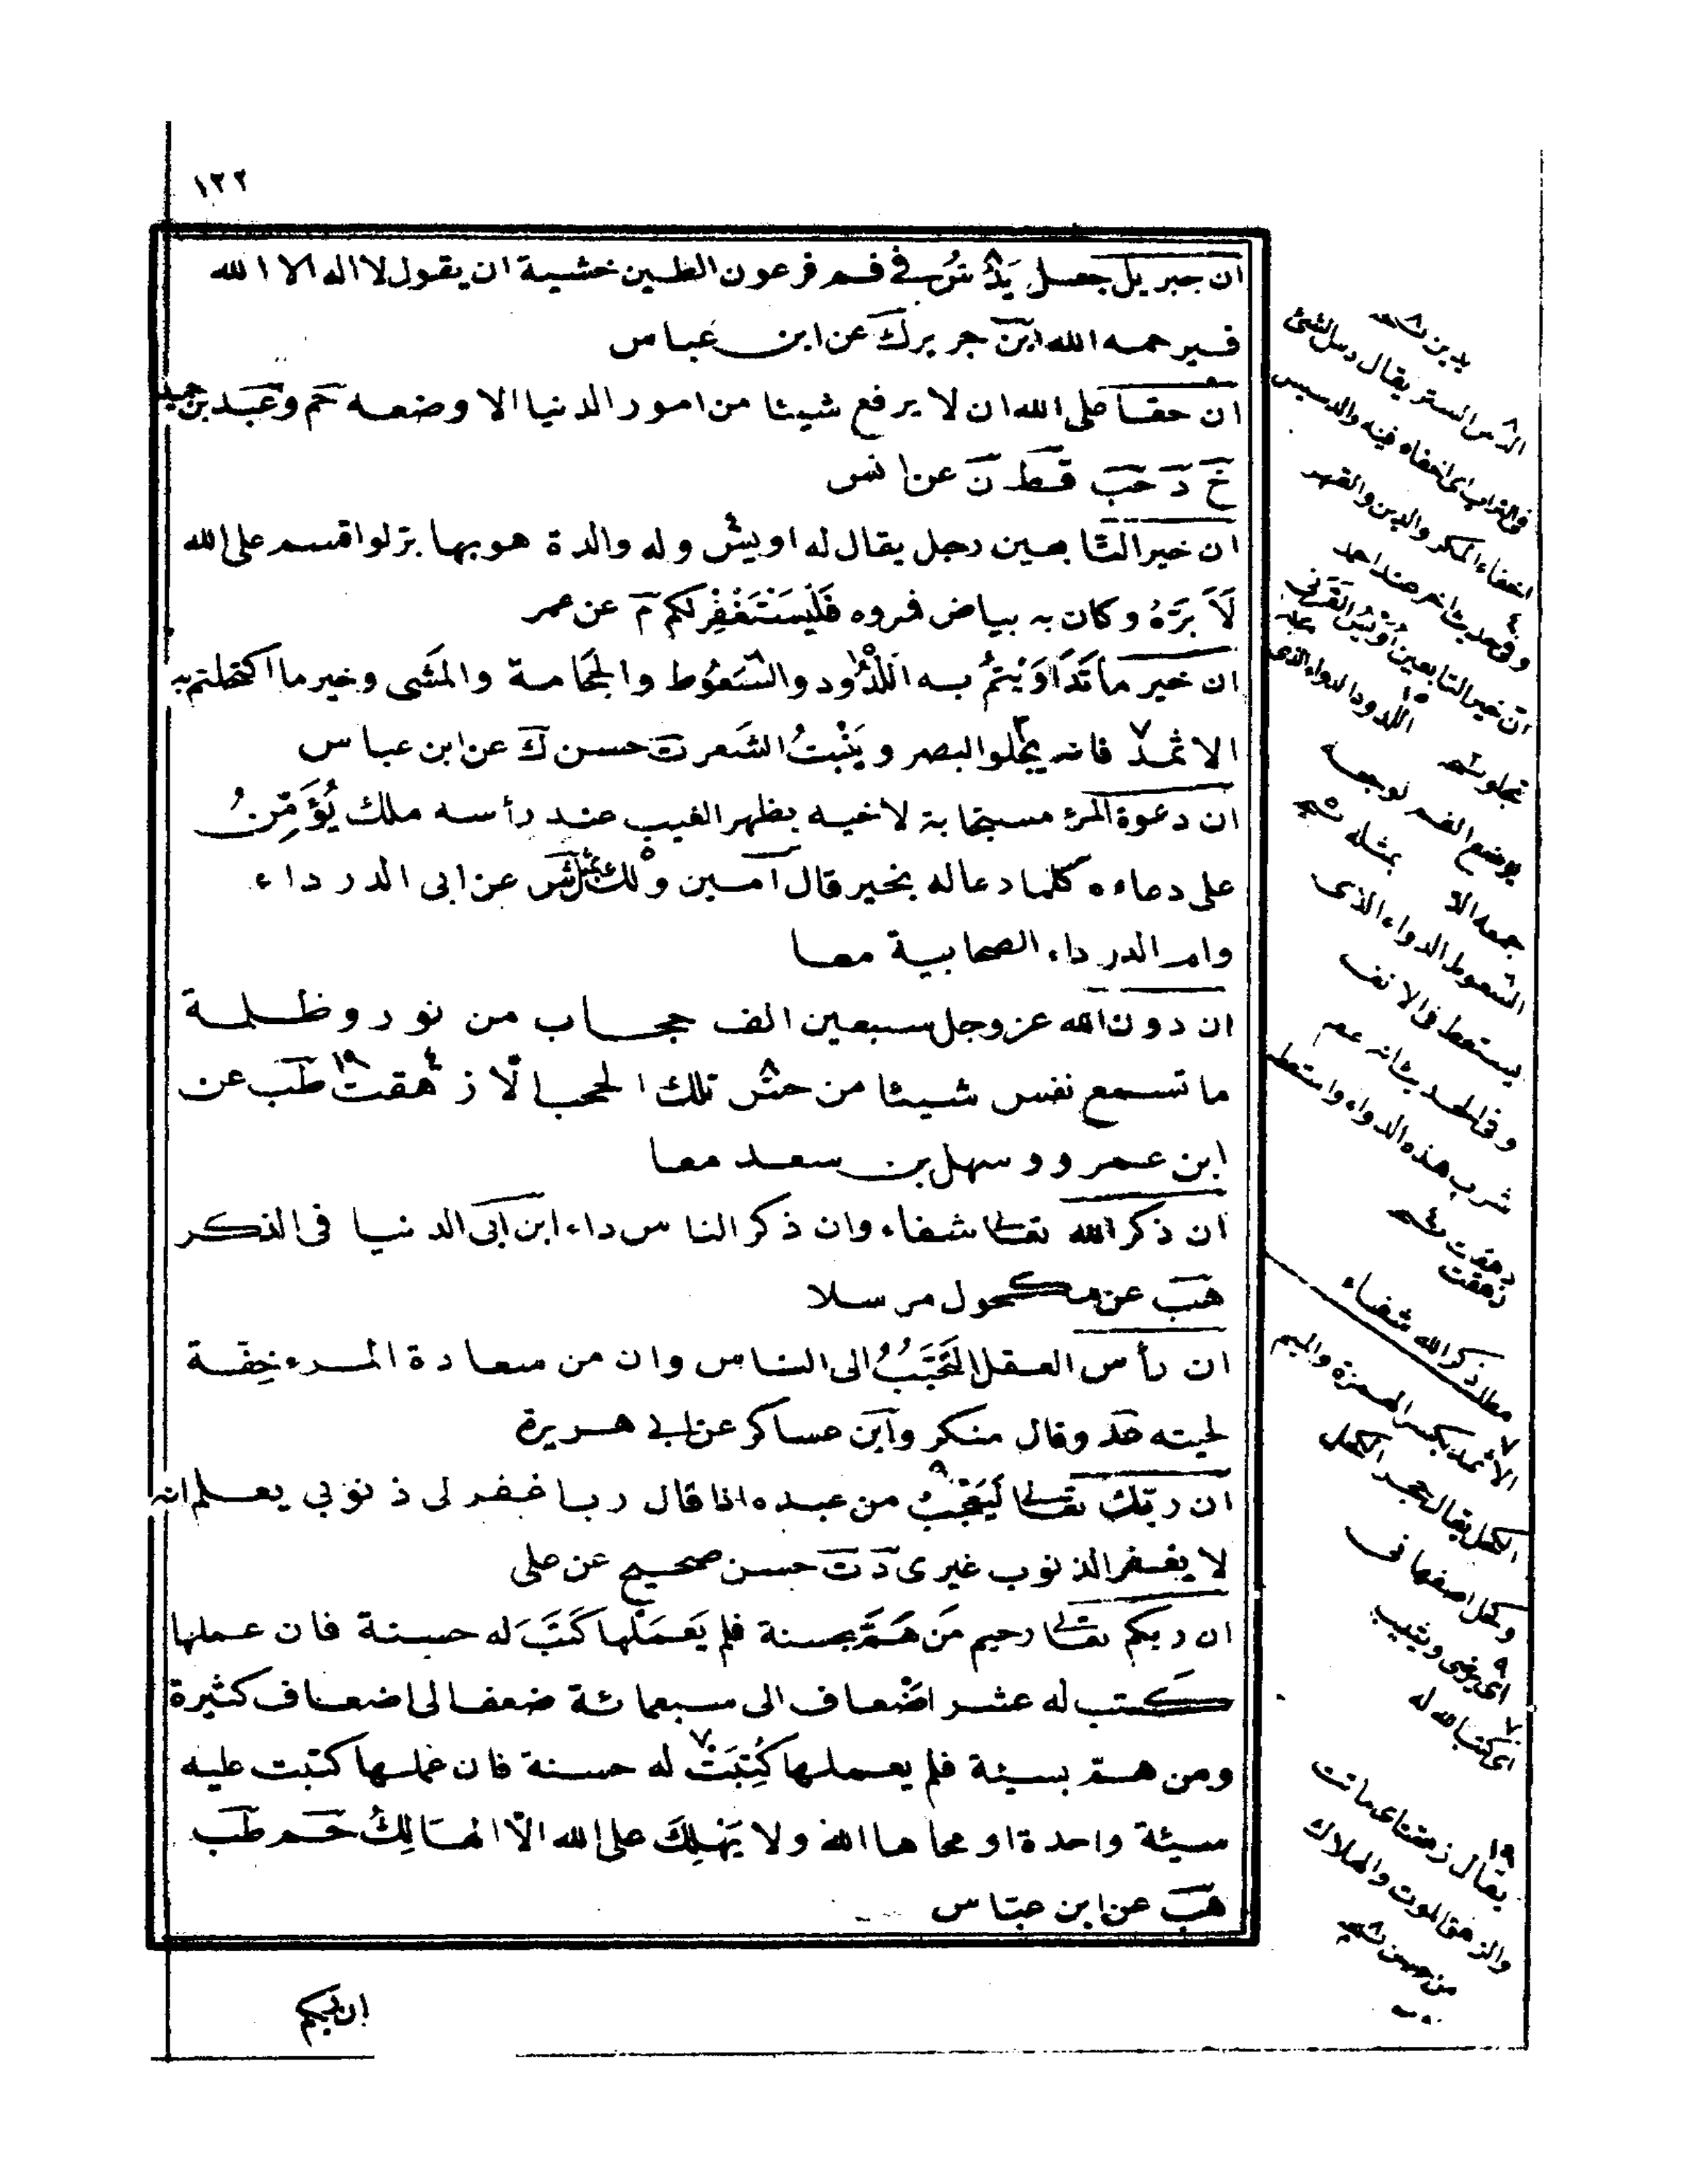 ١٢٢
ان جبريل جعل يَدُسُّ في فم فرعون الطين خشية ان يقول لا اله الا الله
فيرحمه الله ابن جرير ك عن ابن عباس
ان حقا على الله ان لا يرفع شيئا من امور الدنيا الا وضعه حم وعبد بن حميد
خ د حب قط ن عن انس
ان خير التابعين رجل يقال له اويس وله والدة هو بها بر لو اقسم على الله
لَاَبَرَّهُ وكان به بياض فروه فَلْيَسْتَغْفِرْ لكم م عن عمر
ان خير ما تَدَاوَيْتُمْ به اللَّدُود والسَّعُوط والحِجَامة والمَشِى وخير ما اكتحلتم به
الاثمد فانه يجلو البصر ويَنْبِتُ الشَعر ت حسن ك عن ابن عباس
ان دعوة المرئ مستجابة لاخيه بظهر الغيب عند رأسه ملك يُؤَمِّنُ
على دعاءه كلما دعا له بخير قال آمين ولك بمثل ش عن ابى الدرداء
وام الدرداء الصحابية معا
ان دون الله عز وجل سبعين الف حجاب من نور وظلمة
ما تسمع نفس شيئا من حس تلك الحجب الّا زهقت طب عن
ابن عمرو وسهل بن سعد معا
ان ذكر الله تعالى شفاء وان ذكر الناس داء ابن ابى الدنيا فى الذكر
هب عن مكحول مرسلا
ان رأس العقل التَّحَبُّبُ الى الناس وان من سعادة المرء خِفّة
لحيته عد وقال منكر وابن عساكر عن ابي هريرة
ان ربّك تعالى لَيَعْجَبُ من عبده اذا قال رب اغفر لى ذنوبي يعلم انه
لا يغفر الذنوب غيرى د ت حسن صحيح عن على
ان ربكم تعالى رحيم مَن هَمَّ بحسنة فلم يَعْمَلْها كَتَبَ له حسنة فان عملها
كتب له عشر اضعاف الى سبعمائة ضعف الى اضعاف كثيرة
ومن همّ بسيئة فلم يعملها كُتِبَتْ له حسنة فان عملها كتبت عليه
سيئة واحدة او محاها الله ولا يَهْلِكَ على الله الّا الهَالِكُ حم طب
هب عن ابن عبّاس
ان ربكم
يدين نسخه
الدس الستر يقال دس الشئ
فى التراب اى اخفاه فيه والدسيس
اخفاء المكر
وفى حديث اخر عند احمد
ان خير التابعين اُوَيْسُ القَرَنى
اللدود الدواء الذى
يوضع الفم
يجلو نسخه
بمثله نسخه
السعوط الدواء الذى
يستعط فى الانف
وفى الحديث انه عم
شرب هذه الدواء واستعط
زهقت
مطلب ذكر الله شفاء
الاثمد بكسر الهمزة والميم
الكحل يقال حجر الكحل
وكحل اصفهانى
اى يرضى ويثيب
اى كتب الله له
يقال زهقت اى ماتت
والزهق الموت والهلاك
من حسن نسخه